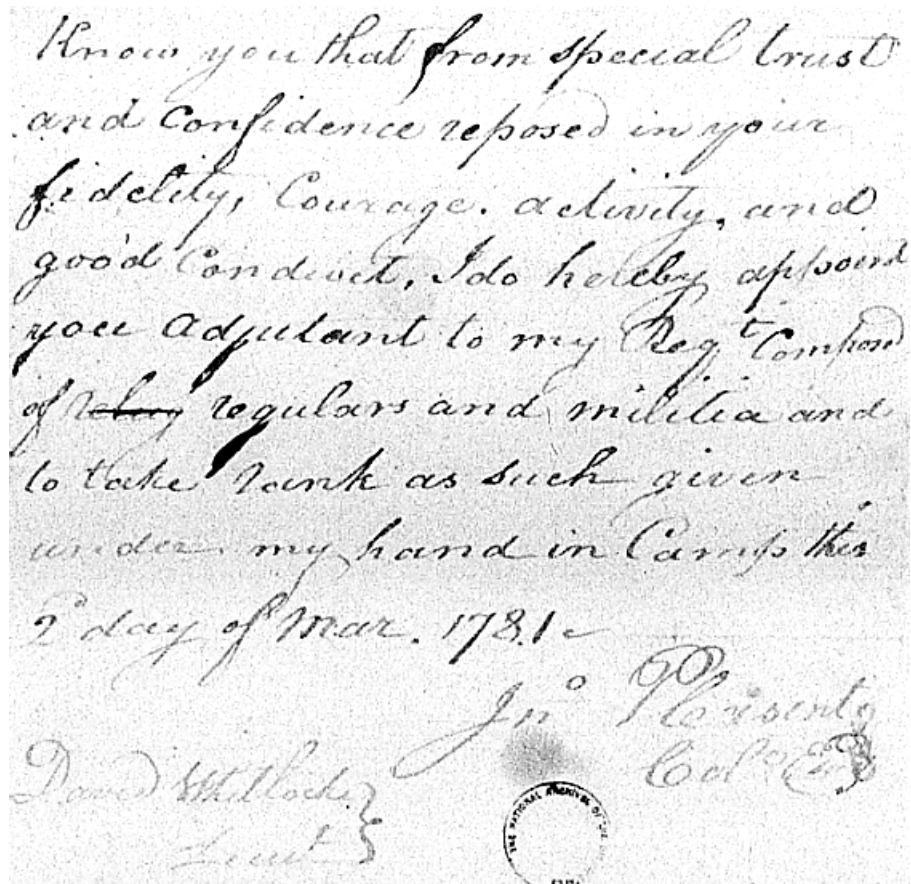 Know you that from special trust
and Confidence reposed in your
fidelity, Courage. activity, and
good Conduct, I do hereby appoint
you Adjutant to my Regt Composed
of regulars and militia and
to take rank as such given
under my hand in Camp this
2d day of Mar. 1781
Jno Pleasants
Colo
David Whitlock
Lieut
THE NATIONAL ARCHIVES OF THE